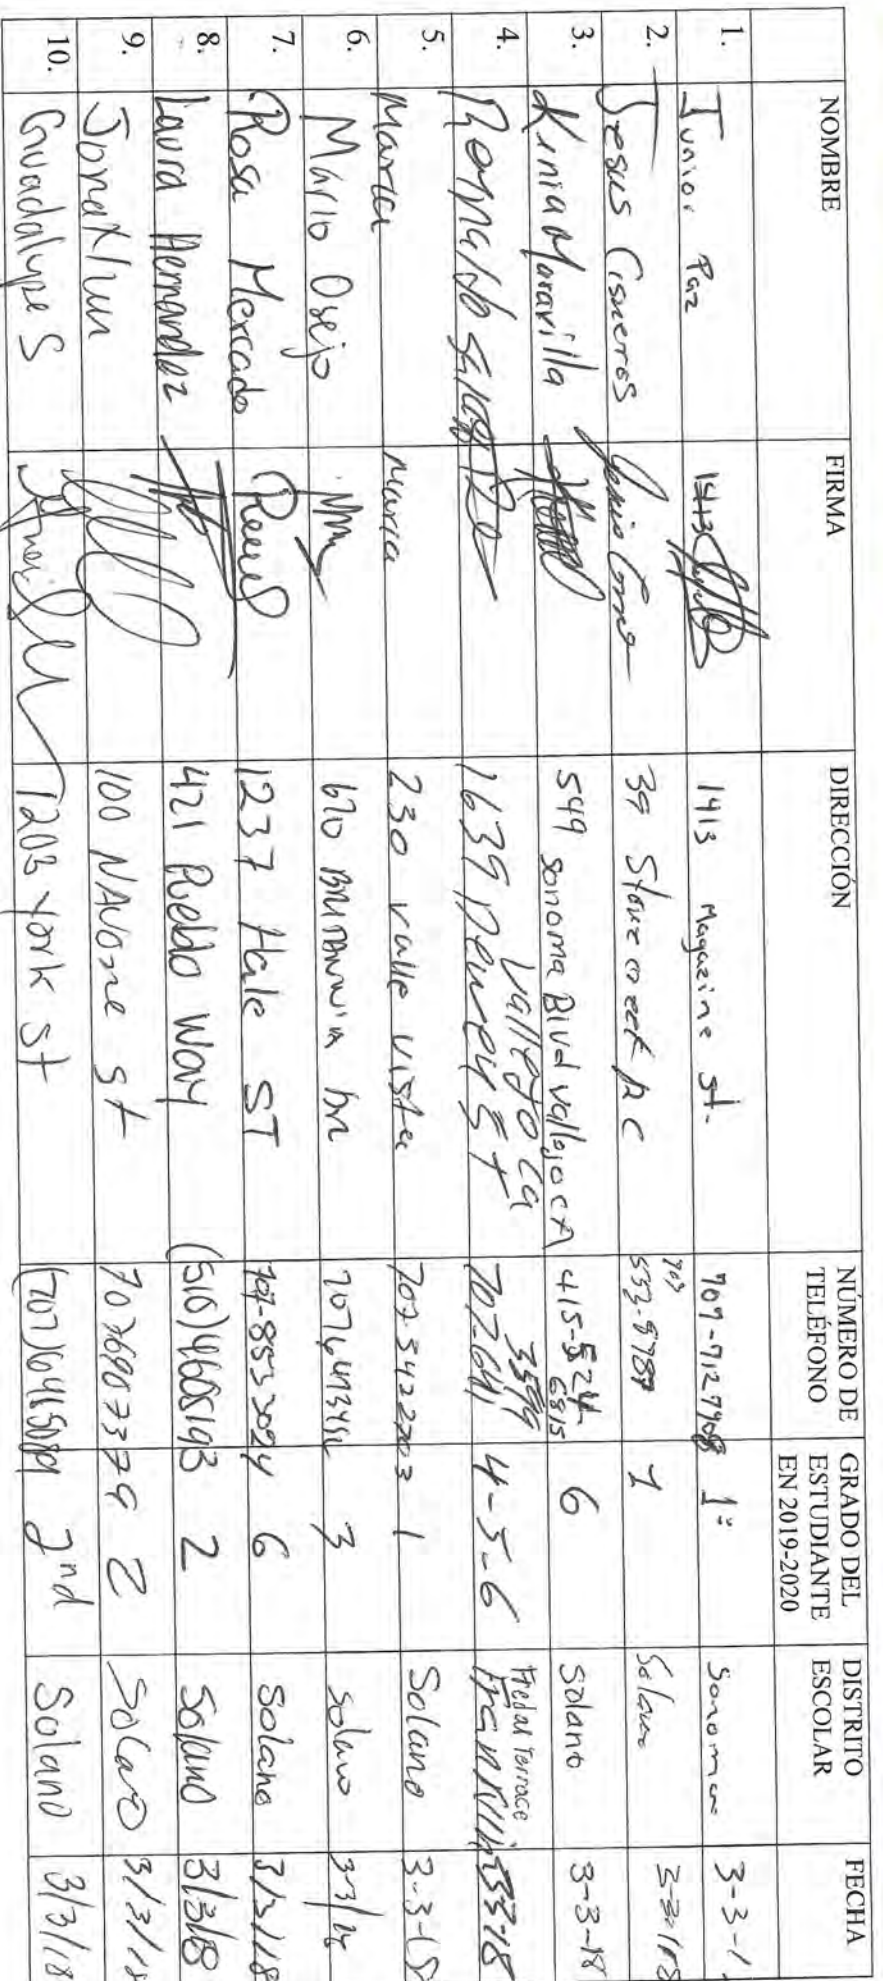 NOMBRE FIRMA DIRECCIÓN NÚMERO DE TELÉFONO GRADO DEL ESTUDIANTE EN 2019-2020 DISTRITO ESCOLAR FECHA
1. Junior Paz 1413 1413 Magazine st. 1º Sonoma 3-3-1
2. Jesus Cisneros 39 707 553-8787 1 Solano
3. Kinia Maravilla 549 Sonoma Blvd vallejo CA 415-524-6815 6 Solano 3-3-18
4. Reynaldo 1639 St Vallejo Ca 707-641 3599 4-5-6 Federal Terrace 3-3-18
5. Maria Maria 230 valle vista 707-3422203 1 Solano 3-3-18
6. Mario Osejo 670 BRITANNIA DR 3 solano
7. Rosa Mercado 1237 Hale ST 707-853 3024 6 Solano 3/3/18
8. Laura Hernandez 421 Pueblo Way (510)4608193 2 Solano 3/3/18
9. Jonathan 100 NAVONE St 7076907379 2 Solano 3/3/18
10. Guadalupe S 1203 York St (707)6415089 2nd Solano 3/3/18